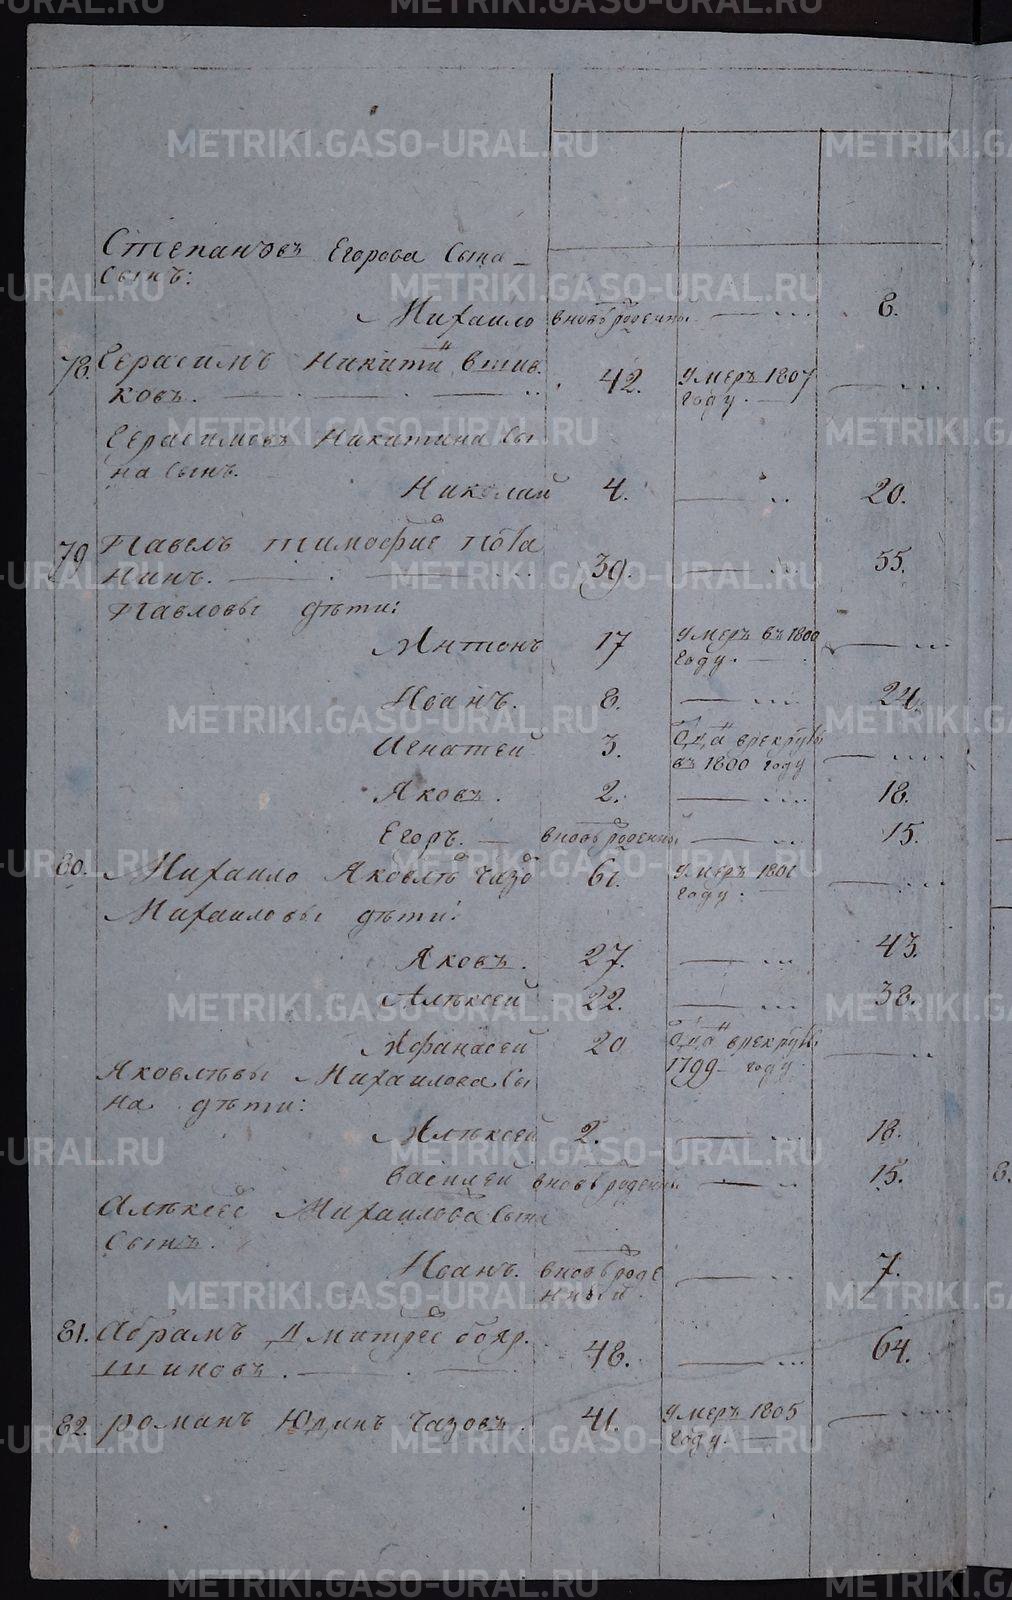 Степановъ Егорова Сына
Сынъ:
Михайло вновь рожденный 8.
78. Герасимъ Никитинъ Вшив
ковъ. 42. умеръ 1807
году.
Герасимовъ Никитина Сы
на Сынъ.
Николай 4. 20.
79. Павелъ Тимофѣе Пота
нинъ. 39. 55.
Павловы дѣти:
Антонъ 17 умеръ въ 1800
году.
Иванъ. 8. 24.
Игнатей 3. в рекруты
въ 1800 году
Яковъ. 2. 18.
Егоръ. вновь рожденный 15.
80. Михайло Яковлев Чазо 61. умеръ 1801
году.
Михайловы дѣти:
Яковъ. 27. 43.
Алѣксей 22. 38.
Афанасей 20 в рекруты
1799 году
Яковлѣвы Михайлова Сы
на дѣти:
Алѣксей 2. 18.
Василей вновь рожденный 15.
Алѣксее Михайлова Сына
Сынъ.
Иванъ. вновь роже 7.
нный.
81. Абрамъ Дмитрее Бояр.
шиновъ. 48. 64.
82. Романъ Юдинъ Чазовъ. 41. умеръ 1805
году.
METRIKI.GASO-URAL.RU